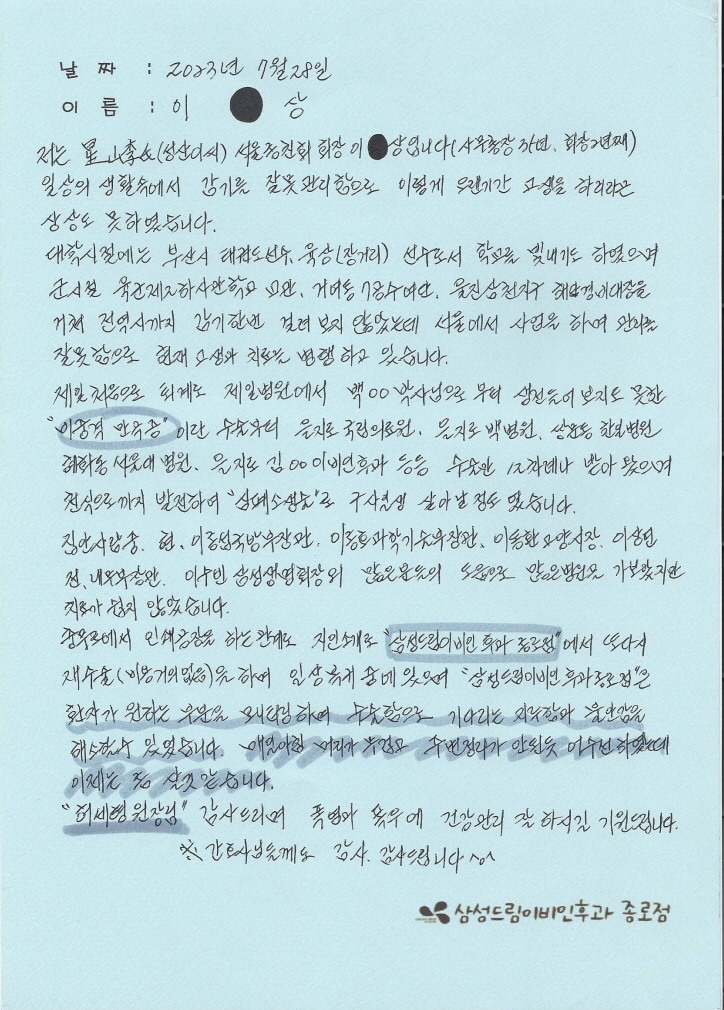 날 짜 : 2023년 7월 28일
이 름 : 이 상
저는 星山李氏(성산이씨) 서울종친회 회장 이 상입니다(사무총장 3년, 회장2년째)
일상의 생활속에서 감기를 잘못관리함으로 이렇게 오랜기간 고생을 하리라곤
상상도 못하였습니다.
대학시절에는 부산시 태권도선수, 육상(장거리) 선수로서 학교를 빛내기도 하였으며
군시절 육군제2하사관학교 교관, 거여동 7공수여단, 울진삼척지구 해안경비대장을
거쳐 전역시까지 감기한번 걸려 보지 않았는데 서울에서 사업을 하며 관리를
잘못함으로 현재 고생과 치료를 병행하고 있습니다.
제일처음으로 퇴계로 제일병원에서 백OO 박사님으로 부터 생전들어보지도 못한
"비중격 만곡증"이란 수술부터 을지로 국립의료원, 을지로 백병원, 한일병원
혜화동 서울대병원, 을지로 김OO이비인후과 등등 수술만 12차례나 받아 왔으며
천식으로까지 발전하여 "심폐소생술"로 구사일생 살아난 적도 있습니다.
집안사람중, 현, 이종섭국방부장관, 이종호과학기술부장관, 이동환고양시장, 이상연
전,내무부장관, 이수빈 삼성생명회장외 많은분들의 도움으로 많은병원을 가보았지만
치료가 쉽지 않았습니다.
충무로에서 인쇄공장을 하는관계로 지인소개로 "삼성드림이비인후과 종로점"에서 또다시
재수술(비용거의없음)을 하며 일상복귀 중에 있으며 "삼성드림이비인후과종로점"은
환자가 원하는 부분을 수술함으로 기다리는 지루함과 불안감을
해소할수 있었습니다. 매일아침 머리가 무겁고 수면정리가 안된듯 하였는데
이제는 좀 살것 같습니다.
"허세형원장님" 감사드리며 폭염과 폭우에 건강관리 잘 하시길 기원드립니다.
※ 간호사님들께도 감사. 감사드립니다 ^o^
삼성드림이비인후과 종로점